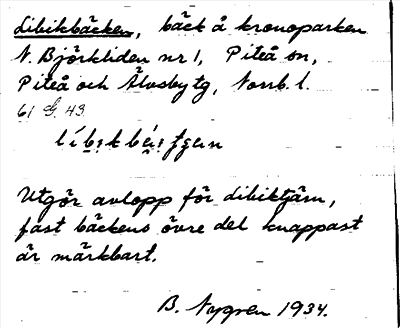 Libikbäcken, bäck å kronoparken
N. Björkliden nr 1, Piteå sn,
Piteå och Älvsby tg, Norrb. l.
61 G. 43.
Utgör avlopp för Libiktjärn,
fast bäckens övre del knappast
är märkbart.
B. Nygren 1934.